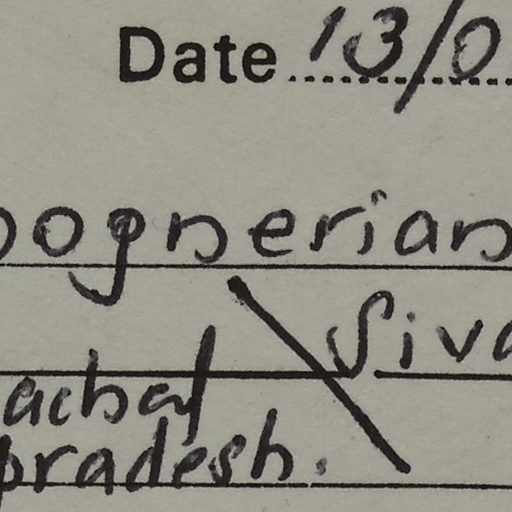 Date 13/0
ognerian
Siva
achal
pradesh.